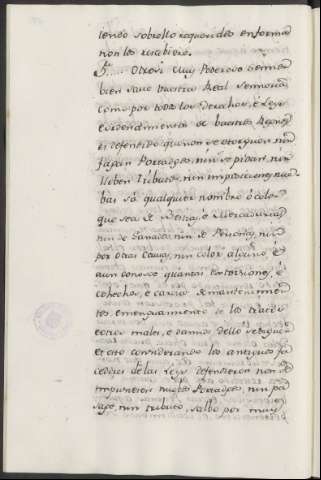 iendo sobrello requeridos en forma
non los resciviere.
5.ª Otrosi Muy Poderoso Señor
bien save vuestra Real Señoria
como por todos los derechos, é Leyes
é ordenamientos de vuestros Regnos
es defendido que non se otorguen nin
fagan Portadgos, nin se pidan, nin
lleben tributos, nin imposiciones nue
bas só qualquier nombre ó color
que sea de Bestias, é Mercadurias
nin de Ganados, nin de Personas, nin
por otras Causas, nin color alguno, é
aun conosce quantas Extorsiones, é
cohechos, é carecia de mantenimien
tos, é menguamiento de los tratos
é otros males, é daños dello se sigue
é esto considerando los antiguos fa
cedores de las Leyes defendieron non se
impusiesen nuebos Portadgos, nin pa
sage, nin tributo, salbo por muy